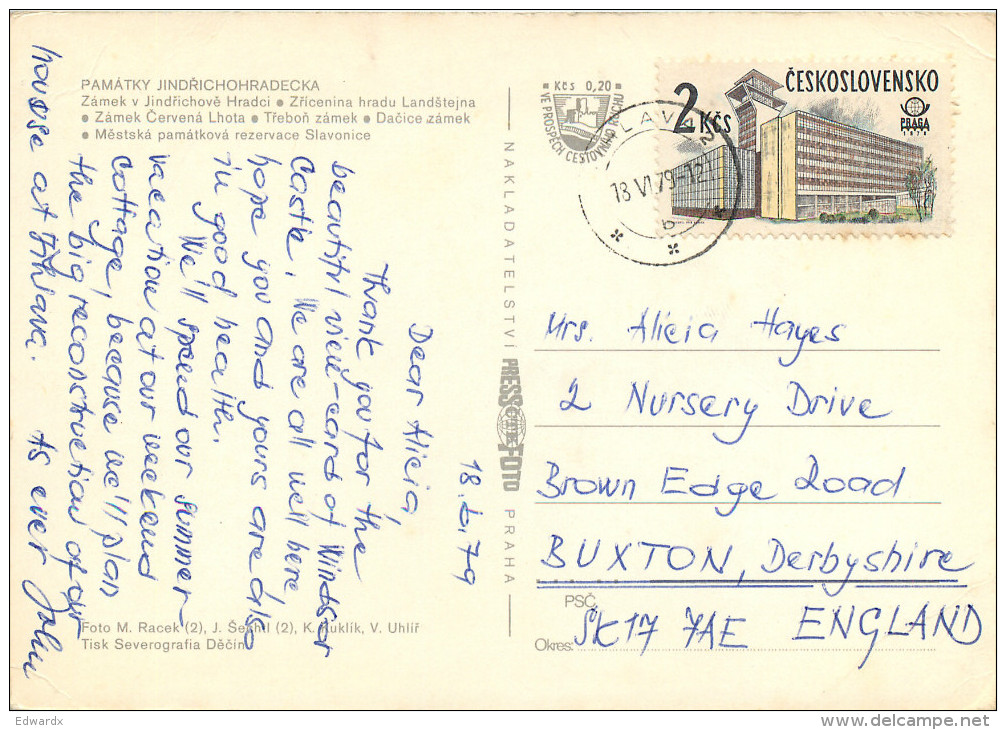 PAMÁTKY JINDŘICHOHRADECKA
Zámek v Jindřichově Hradci • Zřícenina hradu Landštejna
• Zámek Červená Lhota • Třeboň zámek • Dačice zámek
• Městská památková rezervace Slavonice
18.6.79
Dear Alicia,
thank you for the
beautiful view-card of Windsor
Castle. We are all well here
hope you and yours are also
in good health.
We'll spend our summer-
vacation at our weekend
cottage, because we'll plan
the big reconstruction of our
house at Jihlava.
As ever John
Foto M. Racek (2), J. Šechtl (2), K. Kuklík, V. Uhlíř
Tisk Severografia Děčín
NAKLADATELSTVÍ PRESSFOTO PRAHA
Kčs 0,20
VE PROSPĚCH CESTOVNÍHO RUCHU
18.VI.79-12
b
2 Kčs
ČESKOSLOVENSKO
PRAGA
1978
Mrs. Alicia Hayes
2 Nursery Drive
Brown Edge Road
BUXTON, Derbyshire
PSČ
SK17 7AE ENGLAND
Okres:
Edwardx
www.delcampe.net